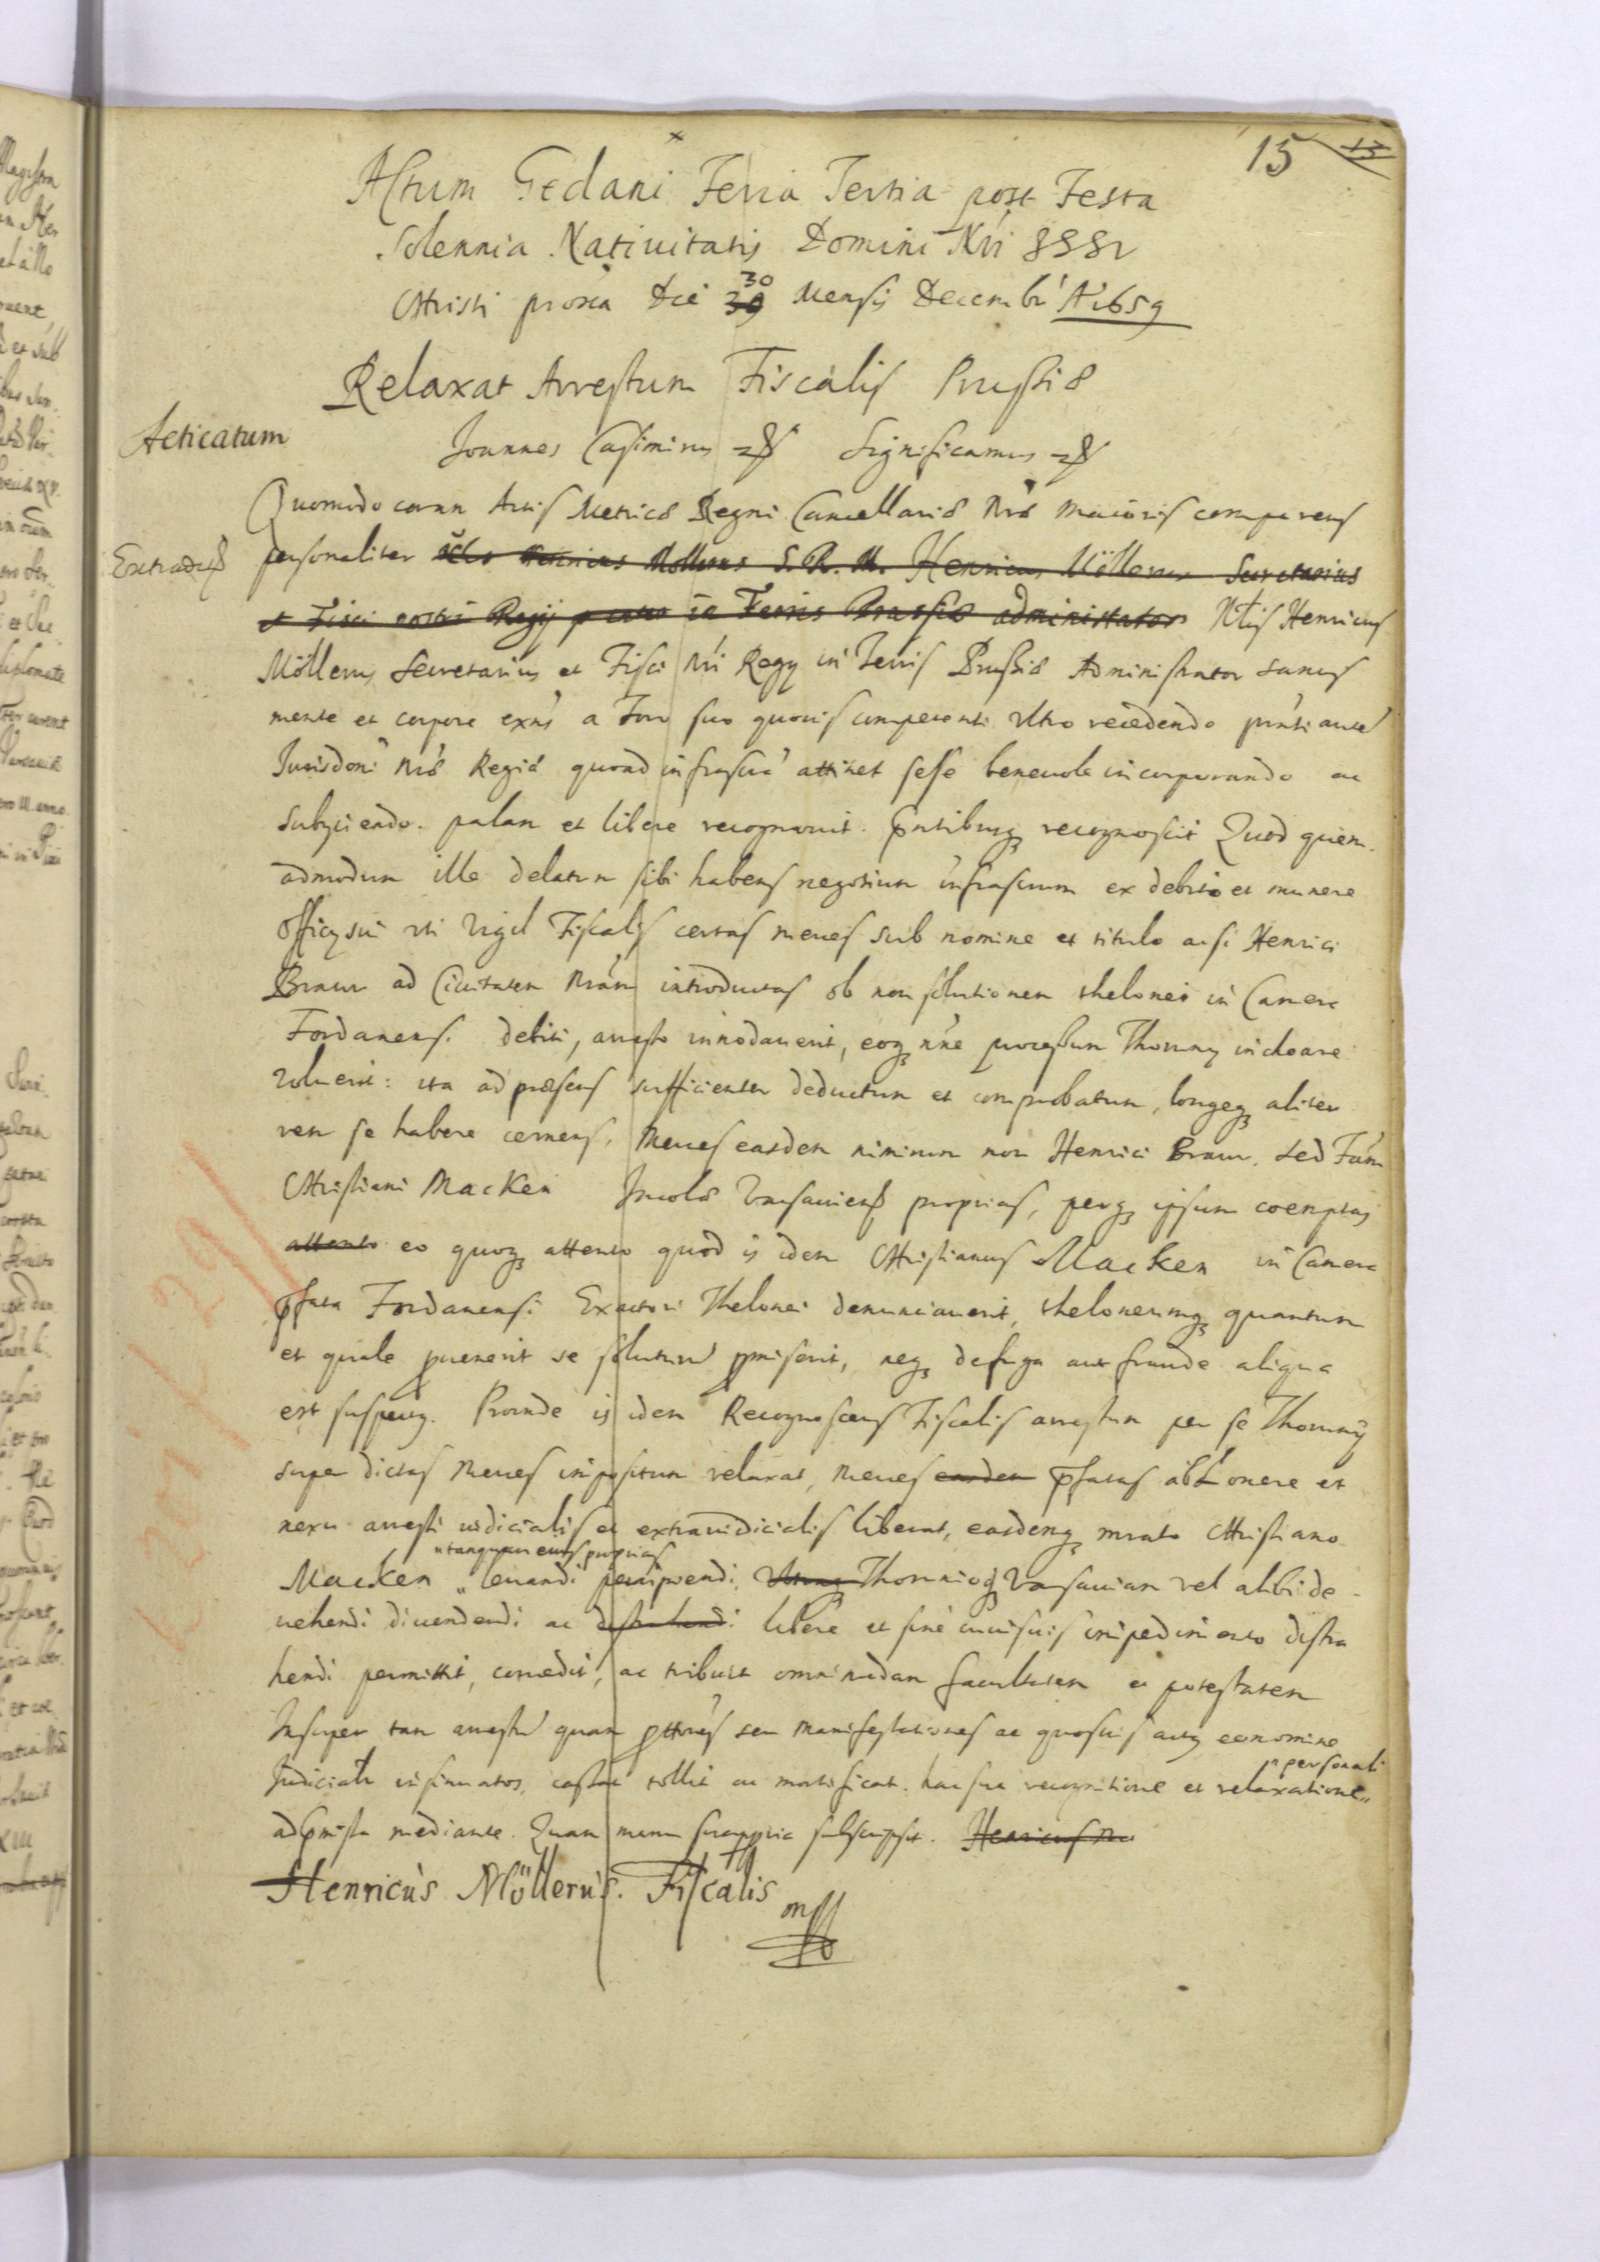 15 13
Actum Gedani Feria Tertia post Festa
Solennia Natiuitatis Domini Nri
Christi proxa Die 39 30 Mensis Decembr A 1659
Relaxat Arrestum Fiscalis Prussiæ
Acticatum
Joannes Casimirus Significamus
Quomodo coram Actis Metrices Regni Cancellariæ Nræ Maioris comparens
Extradit
personaliter Henricus Mollerus S. R. M. Henricus Möllerus Secretarius
et Fisci nostri Regij in Terris Prussiæ administrator Henricus
Möllerus Secretarius et Fisci Nri Regij in Terris Prussiæ Administrator sanus
mente et corpore exns a Foro suo quouis competenti ultro recedendo
Jurisdoni Næ Regiæ quoad infrascra attinet sese beneuole incorporando ac
subyciendo. palam et libere recognouit. recognoscit Quod quem
admodum ille delatum sibi habens negotium infrascrum ex debito et munere
Officy sui uti Vigil Fiscalis certas merces sub nomine et titulo acsi Henrici
Braur ad Ciuitatem Nram introductas ob non solutionem thelonei in Camera
Fordanensi debiti, arresto innodauerit, eoq nne processum Thoruny inchoare
voluerit: ita ad præsens sufficienter deductum et comprobatum, longeq aliter
rem se habere cernens, Merces easdem nimirum non Henrici Braur, sed Fam
Christiani Macken Incolæ Varsauiens proprias, perq ipsum coemptas
attento eo quoq attento quod is idem Christianus Macken in Camera
pfata Fordanensi Exactori Thelonei denunciauerit, theloneumq quantum
et quale puenerit se soluturu pmiserit, neq defuga aut fraude aliqua
est suspectq. Proinde is idem Recognoscens Fiscalis arrestum per se Thoruny
super dictas Merces impositum relaxat, Merces easdem pfatas ab onere et
nexu arresti iudicialis et extraiudicialis liberat, easdemq mrato Christiano
utanquam proprias
Macken leuandi percipiendi, Thoruniaq Varsauiam vel alibi de
uehendi diuendendi ac distrahendi libere et sine cuiusuis impedimento distra
hendi permittit, concedit, ac tribuit omnimodam facultatem et potestatem
Insuper tam arrestu quam pttones seu Manifestationes ac quosuis actq eonomine
personali
Judicialr insinuatos, cassat tollit ac mortificat hac sua recognitione et relaxatione
mediante. Quam manu suappria subscripsit. Henricus Mo
Henricùs Möllerùs. Fiscalis mpp